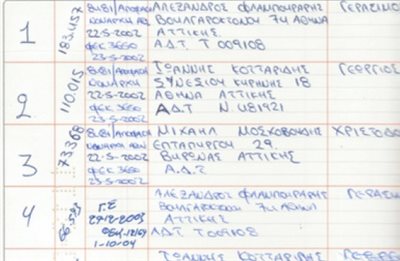 1
183.457
8181/ΑΠΟΦΑΣΗ
ΝΟΜΑΡΧΗ ΑΘΗ
22-5-2002
ΦΕΚ 3660
23-5-2002
ΑΛΕΞΑΝΔΡΟΣ ΦΛΑΜΠΟΥΡΑΡΗΣ
ΒΟΥΛΓΑΡΟΚΤΟΝΟΥ 74 ΑΘΗΝΑ
ΑΤΤΙΚΗΣ
Α.Δ.Τ. Τ 009108
ΓΕΡΑΣΙΜΟ
2
110.015
8181/ΑΠΟΦΑΣΗ
ΝΟΜΑΡΧΗ
22-5-2002
ΦΕΚ 3660
23-5-2002
ΙΩΑΝΝΗΣ ΚΟΤΤΑΡΙΔΗΣ
ΣΥΝΕΣΙΟΥ ΚΥΡΗΝΗΣ 18
ΑΘΗΝΑ ΑΤΤΙΚΗΣ
Α.Δ.Τ Ν 481921
ΓΕΩΡΓΙΟΣ
3
73.368
8181/ΑΠΟΦΑΣΗ
ΝΟΜΑΡΧΗ ΑΘΗ
22-5-2002
ΦΕΚ 3660
23-5-2002
ΜΙΧΑΗΛ ΜΟΣΚΟΒΟΥΔΗΣ
ΕΠΤΑΠΥΡΓΟΥ 29
ΒΥΡΩΝΑΣ ΑΤΤΙΚΗΣ
Α.Δ.Τ
ΧΡΙΣΤΟΔΟ
4
Γ.Σ
29-12-2003
1-10-04
ΑΛΕΞΑΝΔΡΟΣ ΦΛΑΜΠΟΥΡΑΡΗΣ
ΒΟΥΛΓΑΡΟΚΤΟΝΟΥ 74 ΑΘΗΝΑ
ΑΤΤΙΚΗΣ
ΑΔΤ. Τ009108
ΓΕΡΑΣΙ
ΙΩΑΝΝΗΣ ΚΟΤΤΑΡΙΔΗΣ